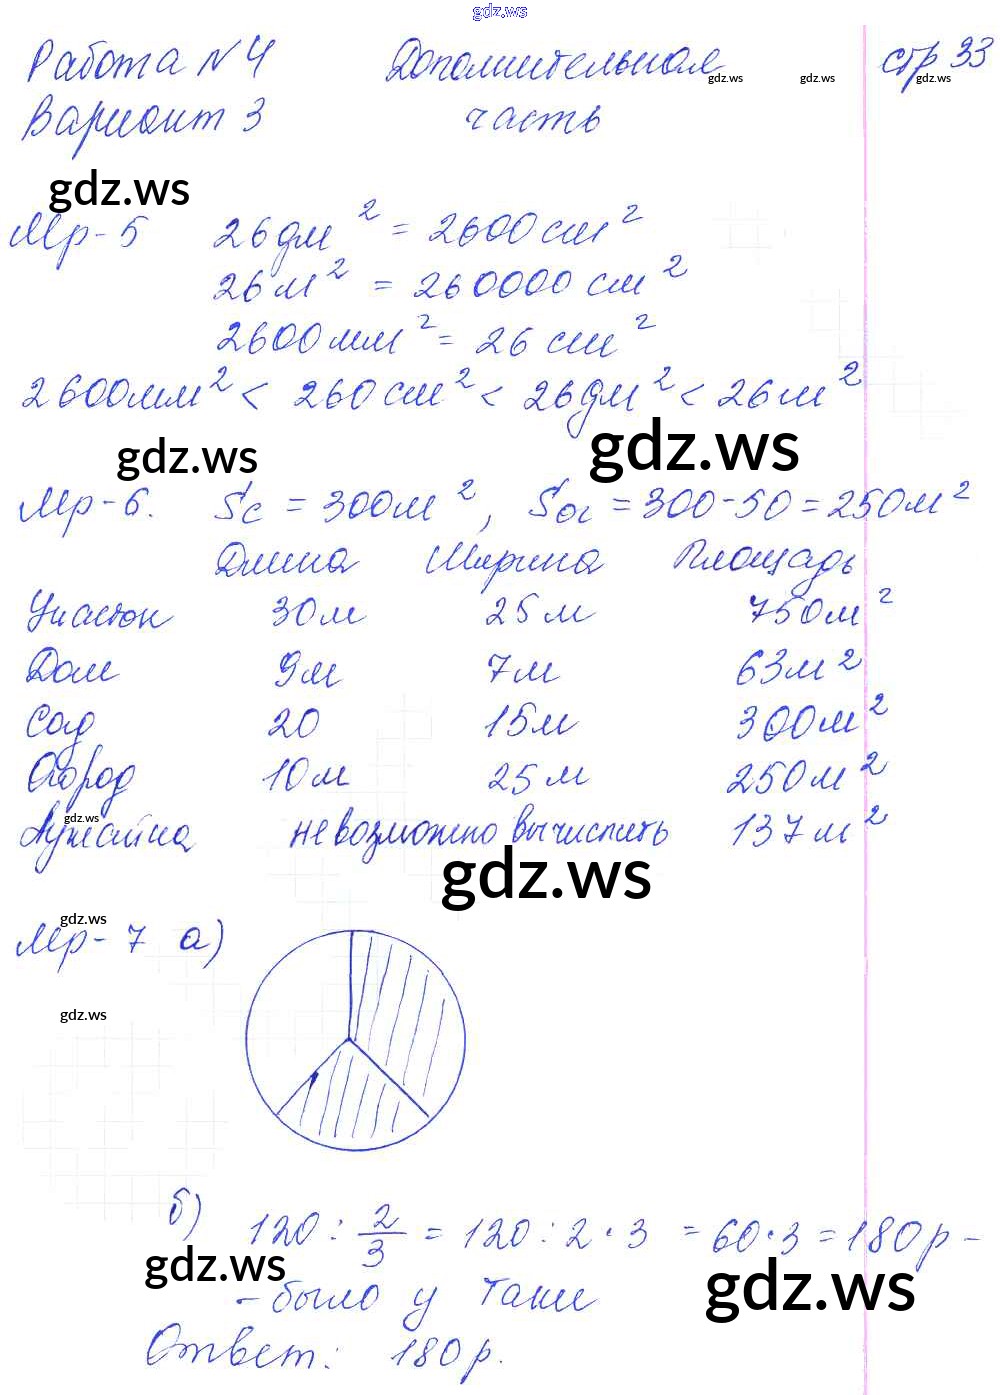 gdz.ws
Работа N 4 Дополнительная стр 33
gdz.ws gdz.ws gdz.ws
Вариант 3 часть
gdz.ws
Мр-5 26 дм² = 2600 см²
26 м² = 260000 см²
2600 мм² = 26 см²
2600 мм² < 260 см² < 26 дм² < 26 м²
gdz.ws gdz.ws
Мр-6. Sс = 300 м², Sог = 300-50 = 250 м²
Длина Ширина Площадь
Участок 30 м 25 м 750 м²
Дом 9 м 7 м 63 м²
Сад 20 15 м 300 м²
Огород 10 м 25 м 250 м²
gdz.ws
Лужайка невозможно вычислить 137 м²
gdz.ws
gdz.ws
Мр-7 а)
gdz.ws
б) 120 : 2/3 = 120 : 2 · 3 = 60 · 3 = 180 р -
gdz.ws gdz.ws
- было у Тани
Ответ: 180 р.